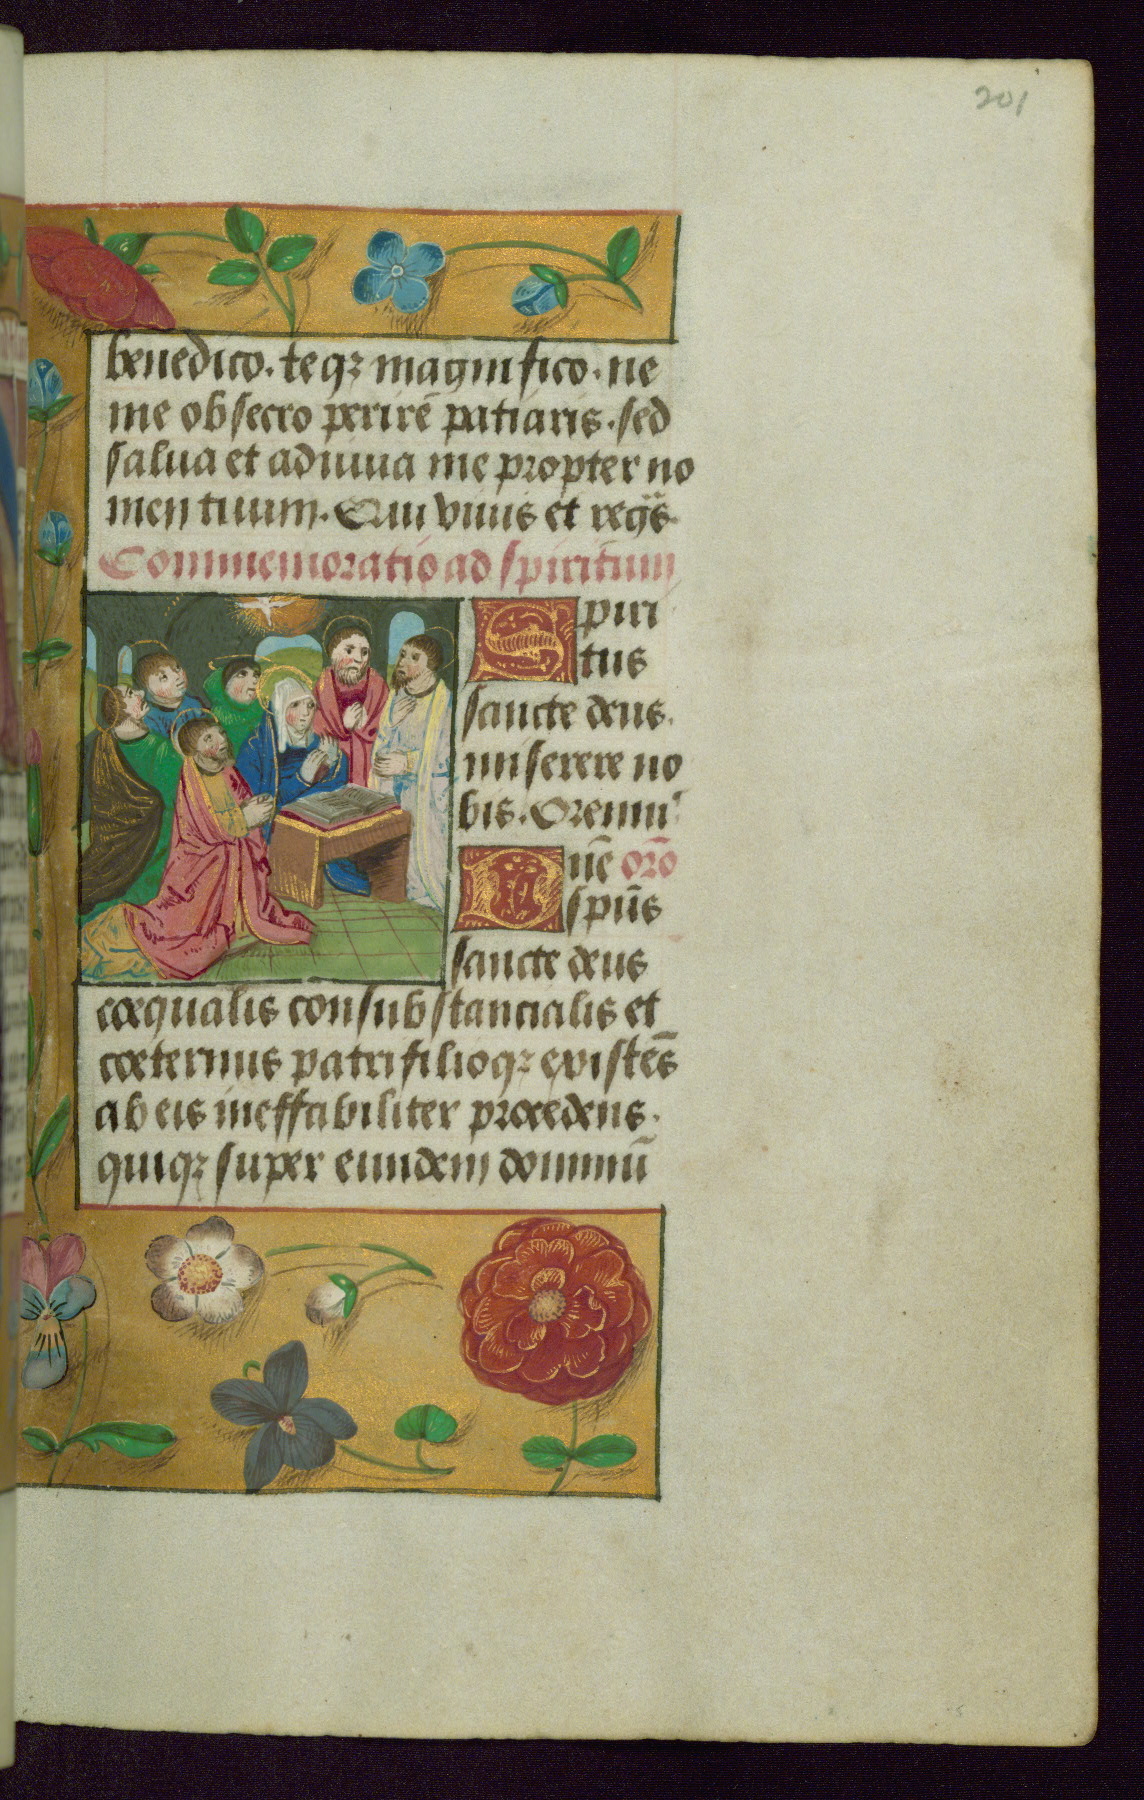 201
benedico. teqꝫ magnifico. ne
me obsecro perirē patiaris. sed
salua et adiuua me propter no
men tuum. Qui viuis et regis
Commemoratio ad spiritum
Spiri
tus
sancte deus.
miserere no
bis. Oremus
Dñe orō
spūs
sancte deus
coequalis consubstancialis et
coeternus patri filioqꝫ existēs
ab eis ineffabiliter procedens.
quiqꝫ super eundem dominū